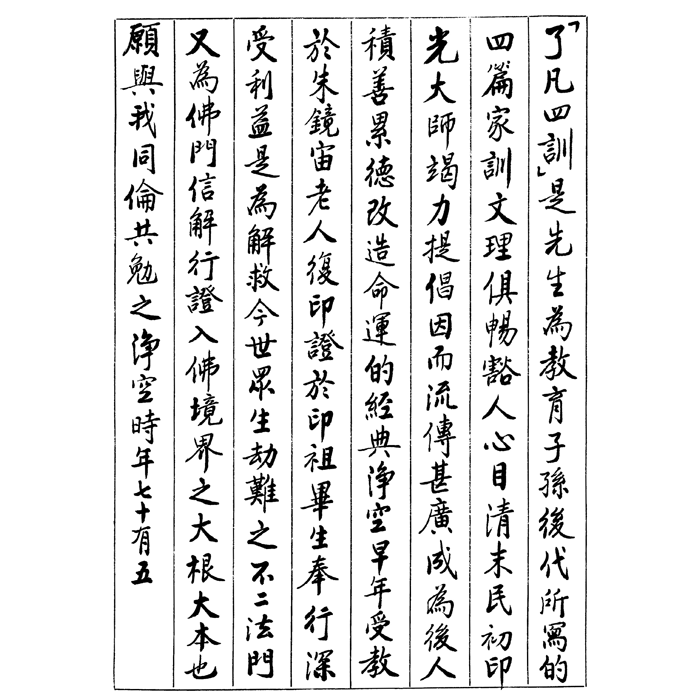 「了凡四訓」是先生為教育子孫後代所寫的
四篇家訓文理俱暢豁人心目清末民初印
光大師竭力提倡因而流傳甚廣成為後人
積善累德改造命運的經典淨空早年受教
於朱鏡宙老人復印證於印祖畢生奉行深
受利益是為解救今世眾生劫難之不二法門
又為佛門信解行證入佛境界之大根大本也
願與我同倫共勉之淨空時年七十有五